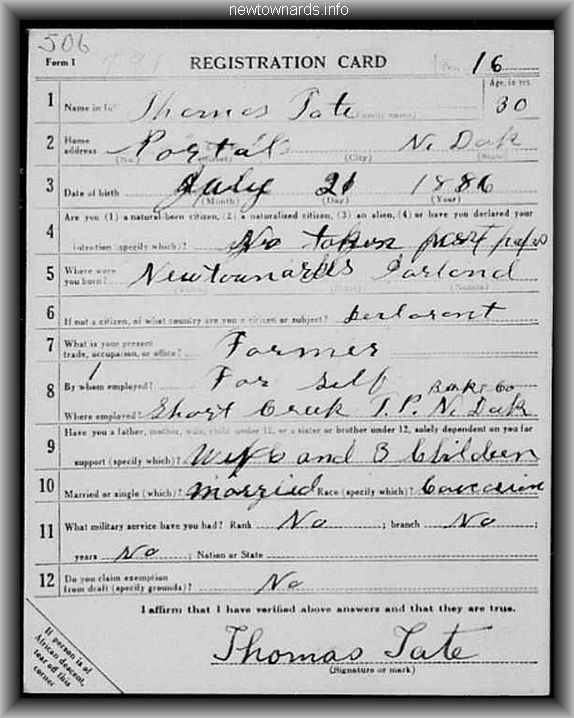 newtownards.info
506
Form 1 REGISTRATION CARD No. 16
1 Name in full Thomas Tate (Family name) Age, in yrs. 30
2 Home address Portal N. Dak
(No.) (Street) (City) (State)
3 Date of birth July 21 1886
(Month) (Day) (Year)
4 Are you (1) a natural-born citizen, (2) a naturalized citizen, (3) an alien, (4) or have you declared your
intention (specify which)? No taken first
5 Where were you born? Newtownardes Iarland
(Town) (State) (Nation)
6 If not a citizen, of what country are you a citizen or subject? Declarent
7 What is your present trade, occupation, or office? Farmer
8 By whom employed? For self
Where employed? Short Creek T.P. Burke Co N. Dak
9 Have you a father, mother, wife, child under 12, or a sister or brother under 12, solely dependent on you for
support (specify which)? Wife and 3 Children
10 Married or single (which)? Married Race (specify which)? Caucasian
11 What military service have you had? Rank No ; branch No ;
years No ; Nation or State
12 Do you claim exemption from draft (specify grounds)? No
I affirm that I have verified above answers and that they are true.
Thomas Tate
(Signature or mark)
If person is of
African descent,
tear off this
corner